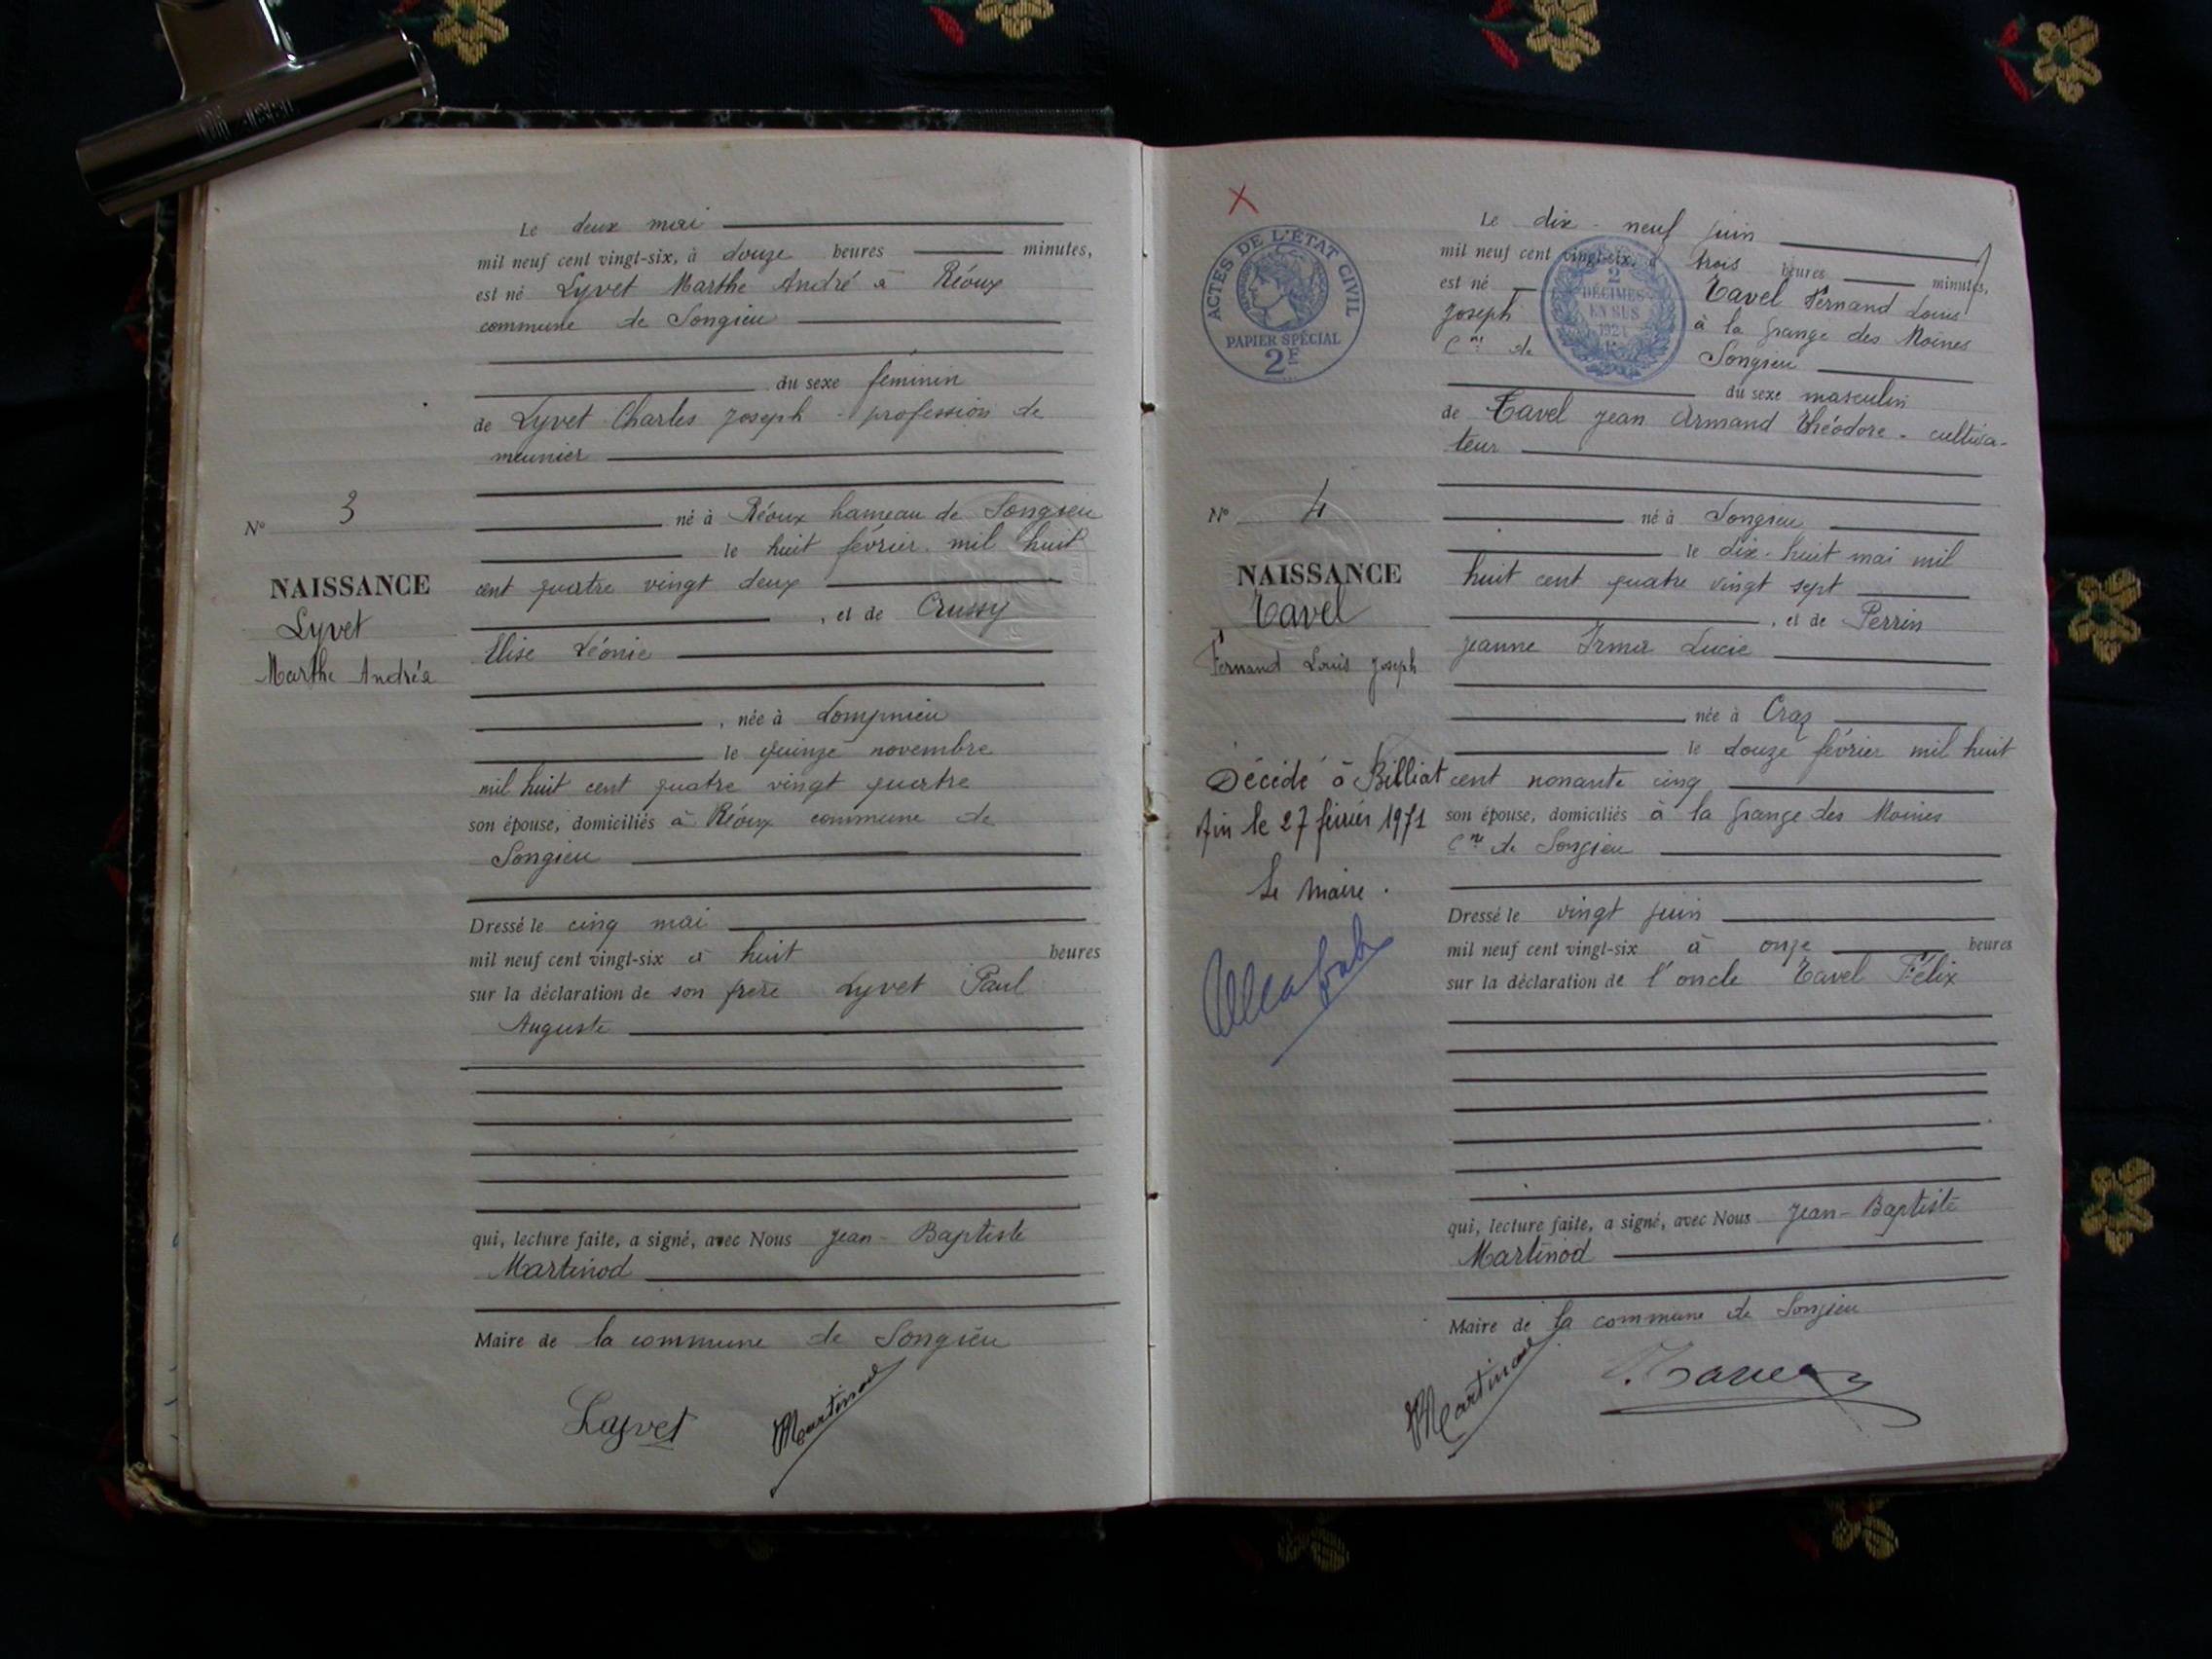 Le deux mai
mil neuf cent vingt-six, à douze heures minutes,
est né Lyvet Marthe André à Réoux
commune de Songieu
du sexe féminin
de Lyvet Charles Joseph - profession de
meunier
né à Réoux hameau de Songieu
le huit février mil huit
cent quatre vingt deux
, et de Crussy
Elise Léonie
, née à Lompnieu
le quinze novembre
mil huit cent quatre vingt quatre
son épouse, domiciliés à Réoux commune de
Songieu
Dressé le cinq mai
mil neuf cent vingt-six à huit heures
sur la déclaration de son frère Lyvet Paul
Auguste
qui, lecture faite, a signé, avec Nous Jean-Baptiste
Martinod
Maire de la commune de Songieu
Layvet Martinod
N° 3
NAISSANCE
Lyvet
Marthe Andréa
X
ACTES DE L'ÉTAT CIVIL
PAPIER SPÉCIAL
2F
2
DÉCIMES
EN SUS
1924
Le dix-neuf juin
mil neuf cent vingt-six, à trois heures minutes,
est né Tavel Fernand Louis
Joseph à la Grange des Moines
Cne de Songieu
du sexe masculin
de Tavel Jean Armand Théodore - cultiva-
teur
né à Songieu
le dix-huit mai mil
huit cent quatre vingt sept
, et de Perrin
Jeanne Irma Lucie
née à Craz
le douze février mil huit
cent nonante cinq
son épouse, domiciliés à la Grange des Moines
Cne de Songieu
Dressé le vingt juin
mil neuf cent vingt-six à onze heures
sur la déclaration de l'oncle Tavel Félix
qui, lecture faite, a signé, avec Nous Jean-Baptiste
Martinod
Maire de la commune de Songieu
Martinod
N° 4
NAISSANCE
Tavel
Fernand Louis Joseph
Décédé à Billiat
Ain le 27 février 1971
Le Maire.